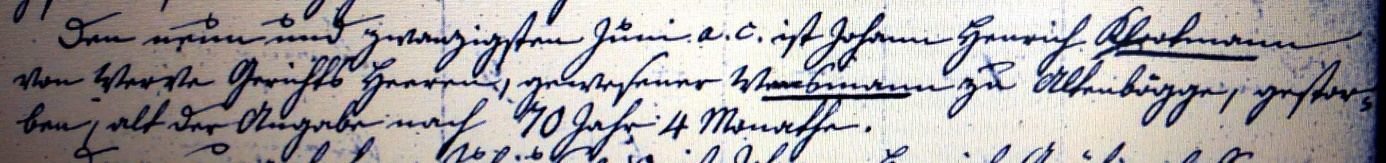 Den neun und zwanzigsten Juni a. c. ist Johann Henrich Klootmann
von Werve Gerichts Heeren, gewesener Wensmann zu Altenbögge, gestor-
ben, alt der Angabe nach 70 Jahr 4 Monathe.